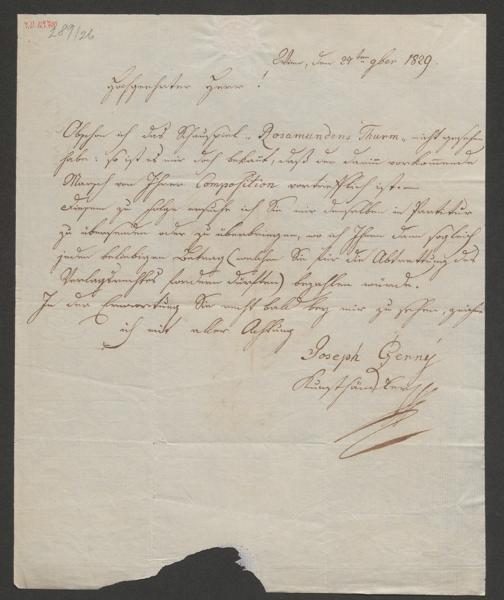 289/26
Wien, den 27ten 9ber 1829.
Hochgeehrter Herr!
Obschon ich das Schauspiel „Rosamundens Thurm“ nicht gesehen
habe: so ist es mir doch bekannt, daß der darinn vorkommende
Marsch von Ihrer Composition vortrefflich ist. —
Diesem zu Folge ersuche ich Sie mir denselben in Partitur
zu übersenden oder zu überbringen, wo ich Ihnen dann sogleich
jeden beliebigen Betrag (welchen Sie für die Abtrettung des
Verlagsrechtes fordern dürften) bezahlen würde.
In der Erwartung Sie recht bald bey mir zu sehen,
ich mit aller Achtung
Joseph Czerný
Kunsthändler